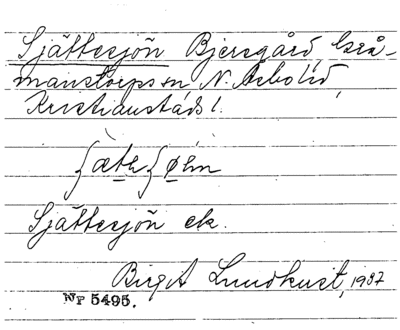 Sjättesjön Bjersgård Grå-
manstorps sn N. Åsbo hd,
Kristianstads l.
ʃæte ʃøn
Sjättesjön ek.
Birgit Lundkvist, 1937
Nr 5495.